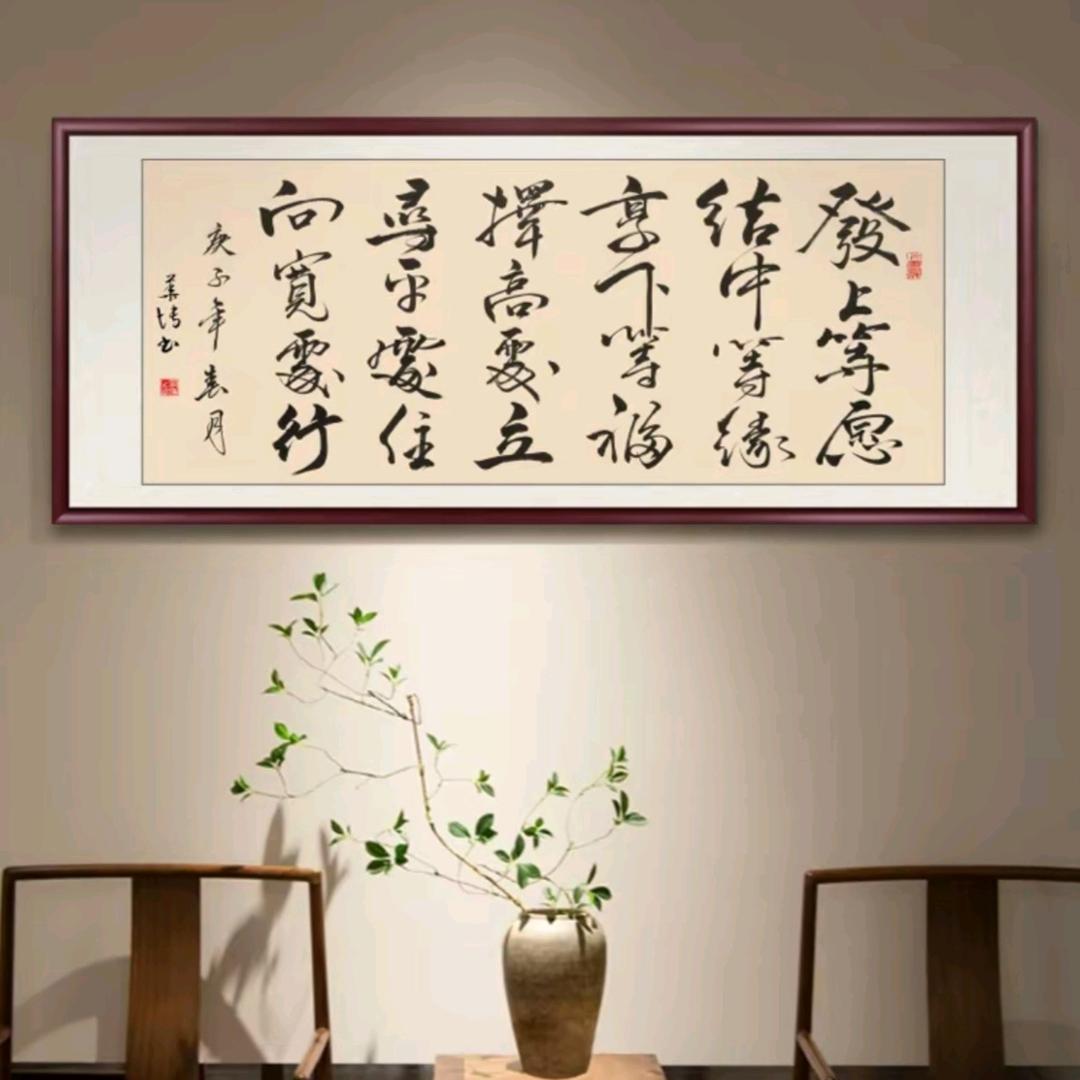 發上等愿
结中等缘
享下等福
擇高處立
尋平處住
向寬處行
庚子年春月